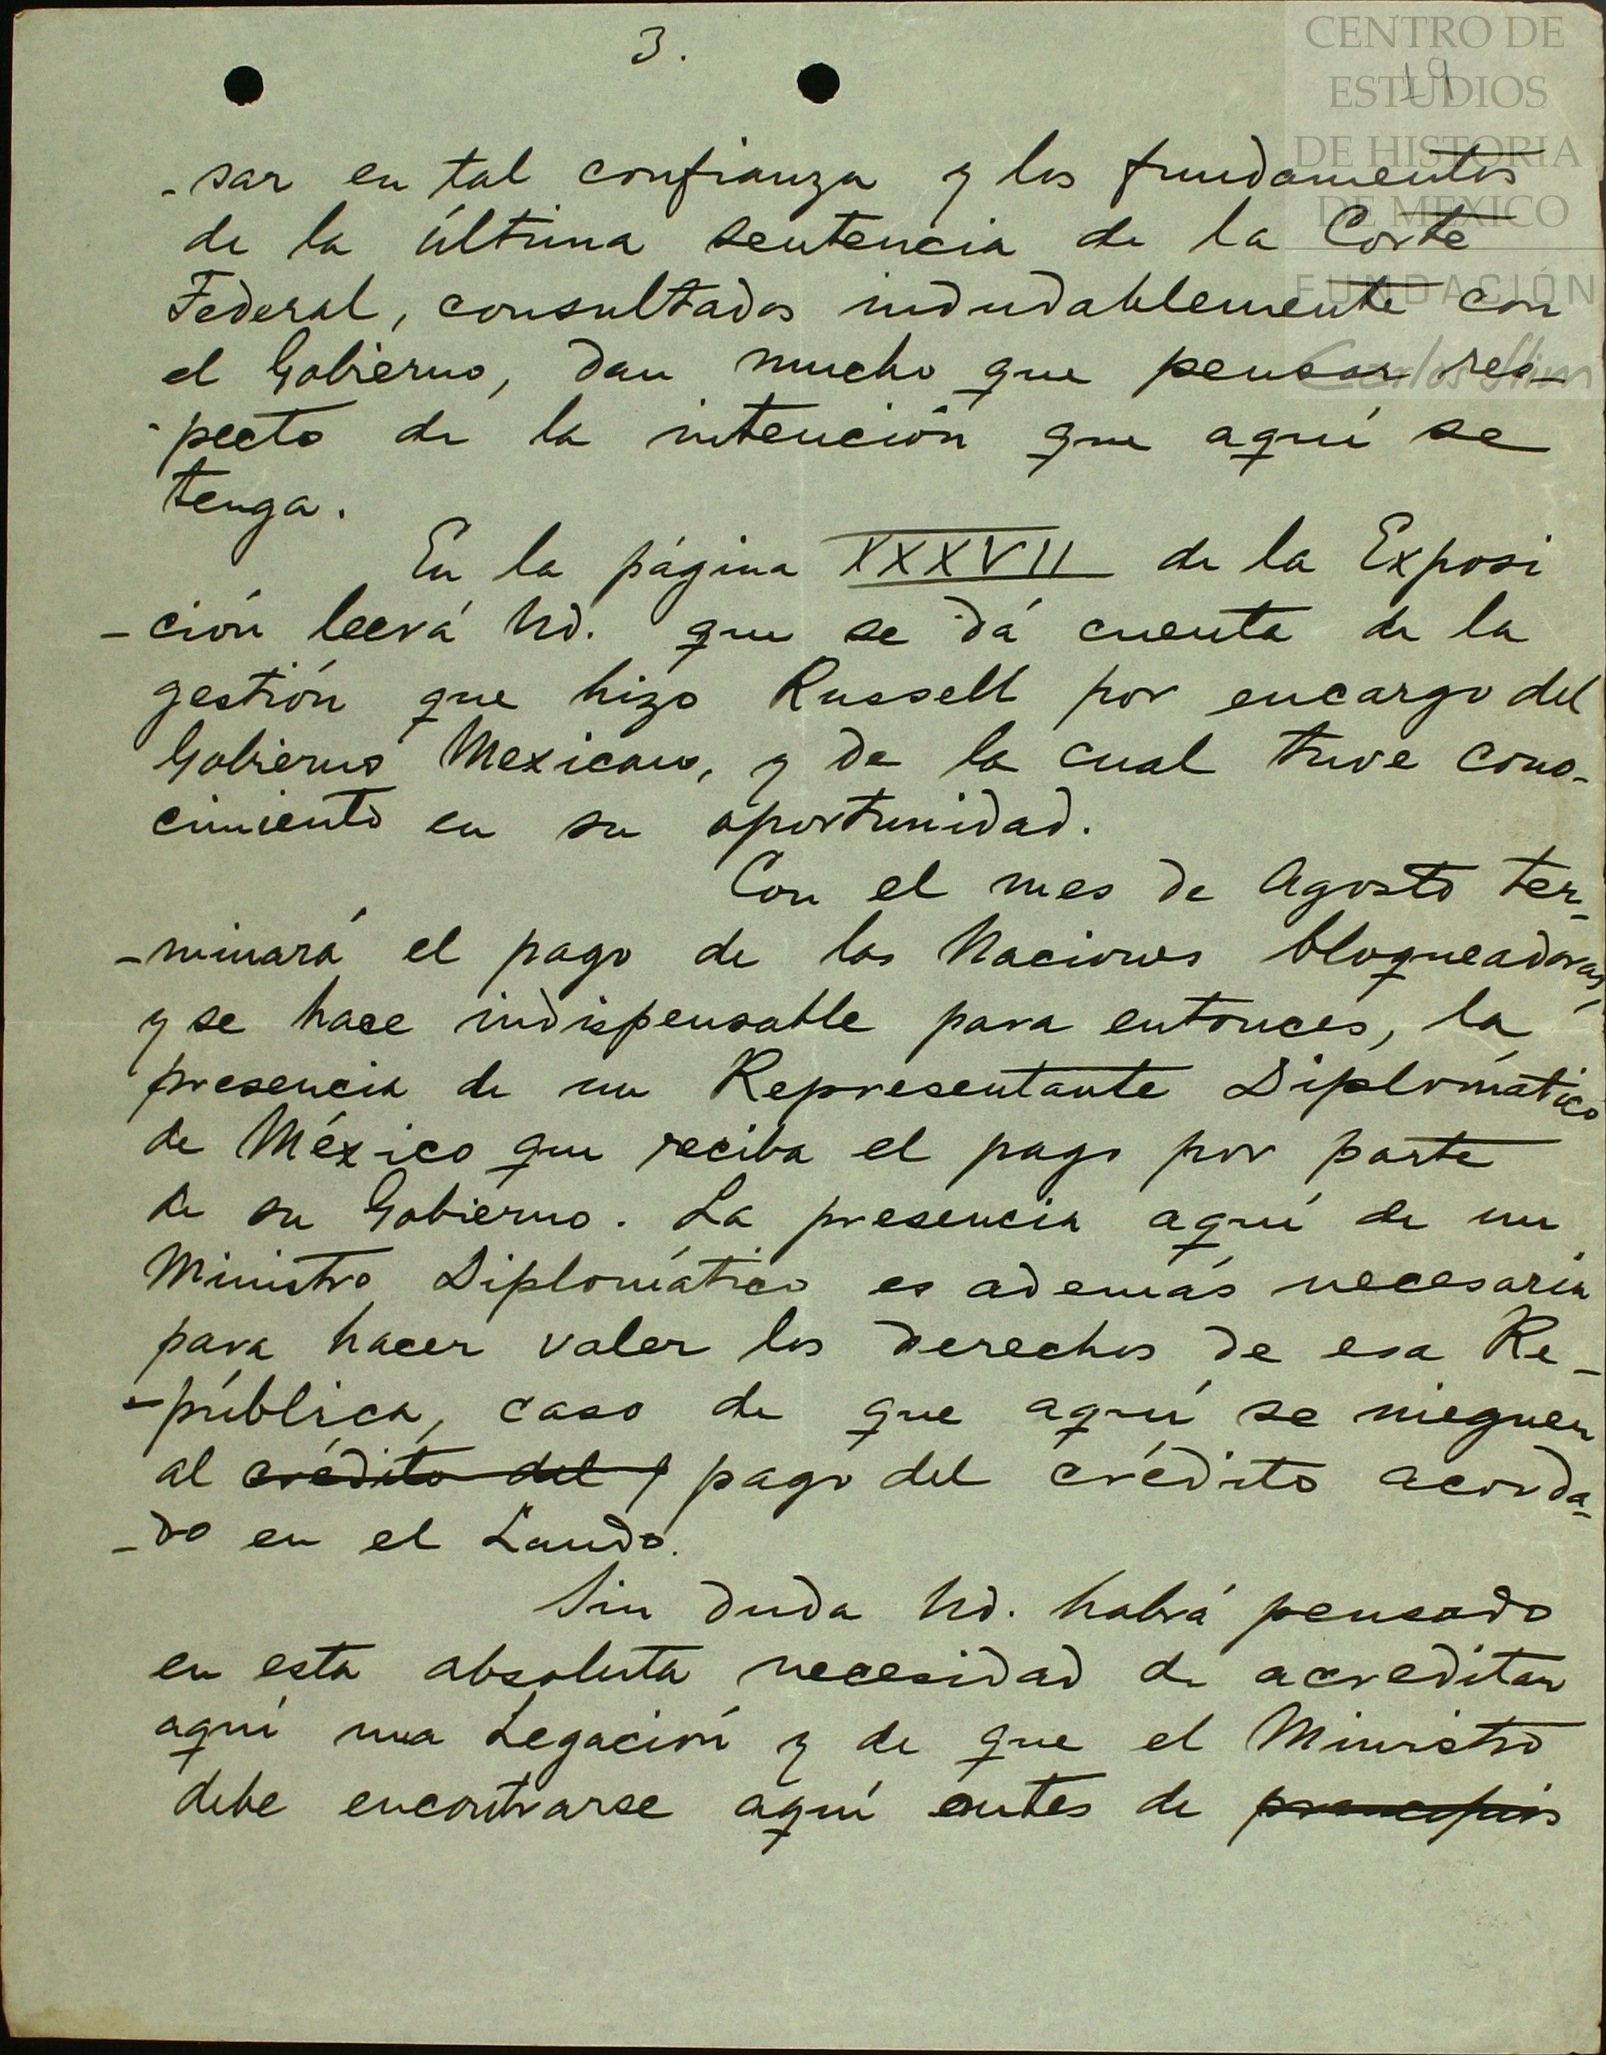 3.
19
CENTRO DE
ESTUDIOS
DE HISTORIA
DE MEXICO
FUNDACIÓN
Carlos Slim
-sar en tal confianza y los fundamentos
de la última sentencia de la Corte
Federal, consultados indudablemente con
el Gobierno, dan mucho que pensar res-
-pecto de la intención que aquí se
tenga.
En la página XXXVII de la Exposi
-ción leerá Ud. que se dá cuenta de la
gestión que hizo Russell por encargo del
Gobierno Mexicano, y de la cual tuve cono-
cimiento en su oportunidad.
Con el mes de Agosto ter-
-minará el pago de las Naciones bloqueadoras,
y se hace indispensable para entonces, la
presencia de un Representante Diplomático
de México que reciba el pago por parte
de su Gobierno. La presencia aquí de un
Ministro Diplomático es además necesaria
para hacer valer los derechos de esa Re-
-pública, caso de que aquí se nieguen
al crédito del p pago del crédito acorda-
-do en el Laudo.
Sin duda Ud. habrá pensado
en esta absoluta necesidad de acreditar
aquí una Legación y de que el Ministro
debe encontrarse aquí antes de